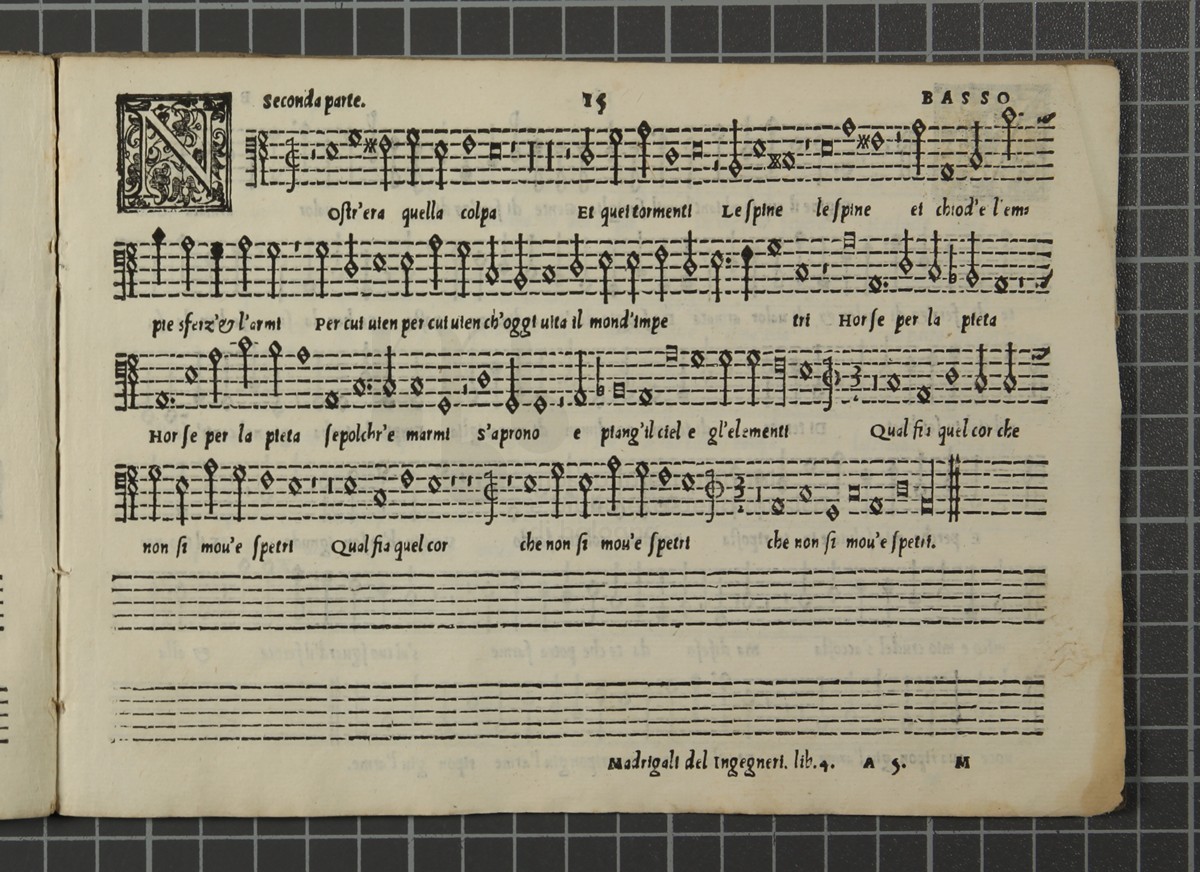 Seconda parte. 15 BASSO
NOstr'era quella colpa Et quei tormenti Le spine le spine et chiod'e l'em-
pie sferz'& l'armi Per cui uien per cui uien ch'oggi uita il mond'impe tri Hor se per la pieta
Hor se per la pieta sepolchr'e marmi s'aprono e piang'il ciel e gl'elementi Qual fia quel cor che
non si mou'e spetri Qual fia quel cor che non si mou'e spetri che non si mou'e spetri.
Madrigali del Ingegneri. lib. 4. A 5. M